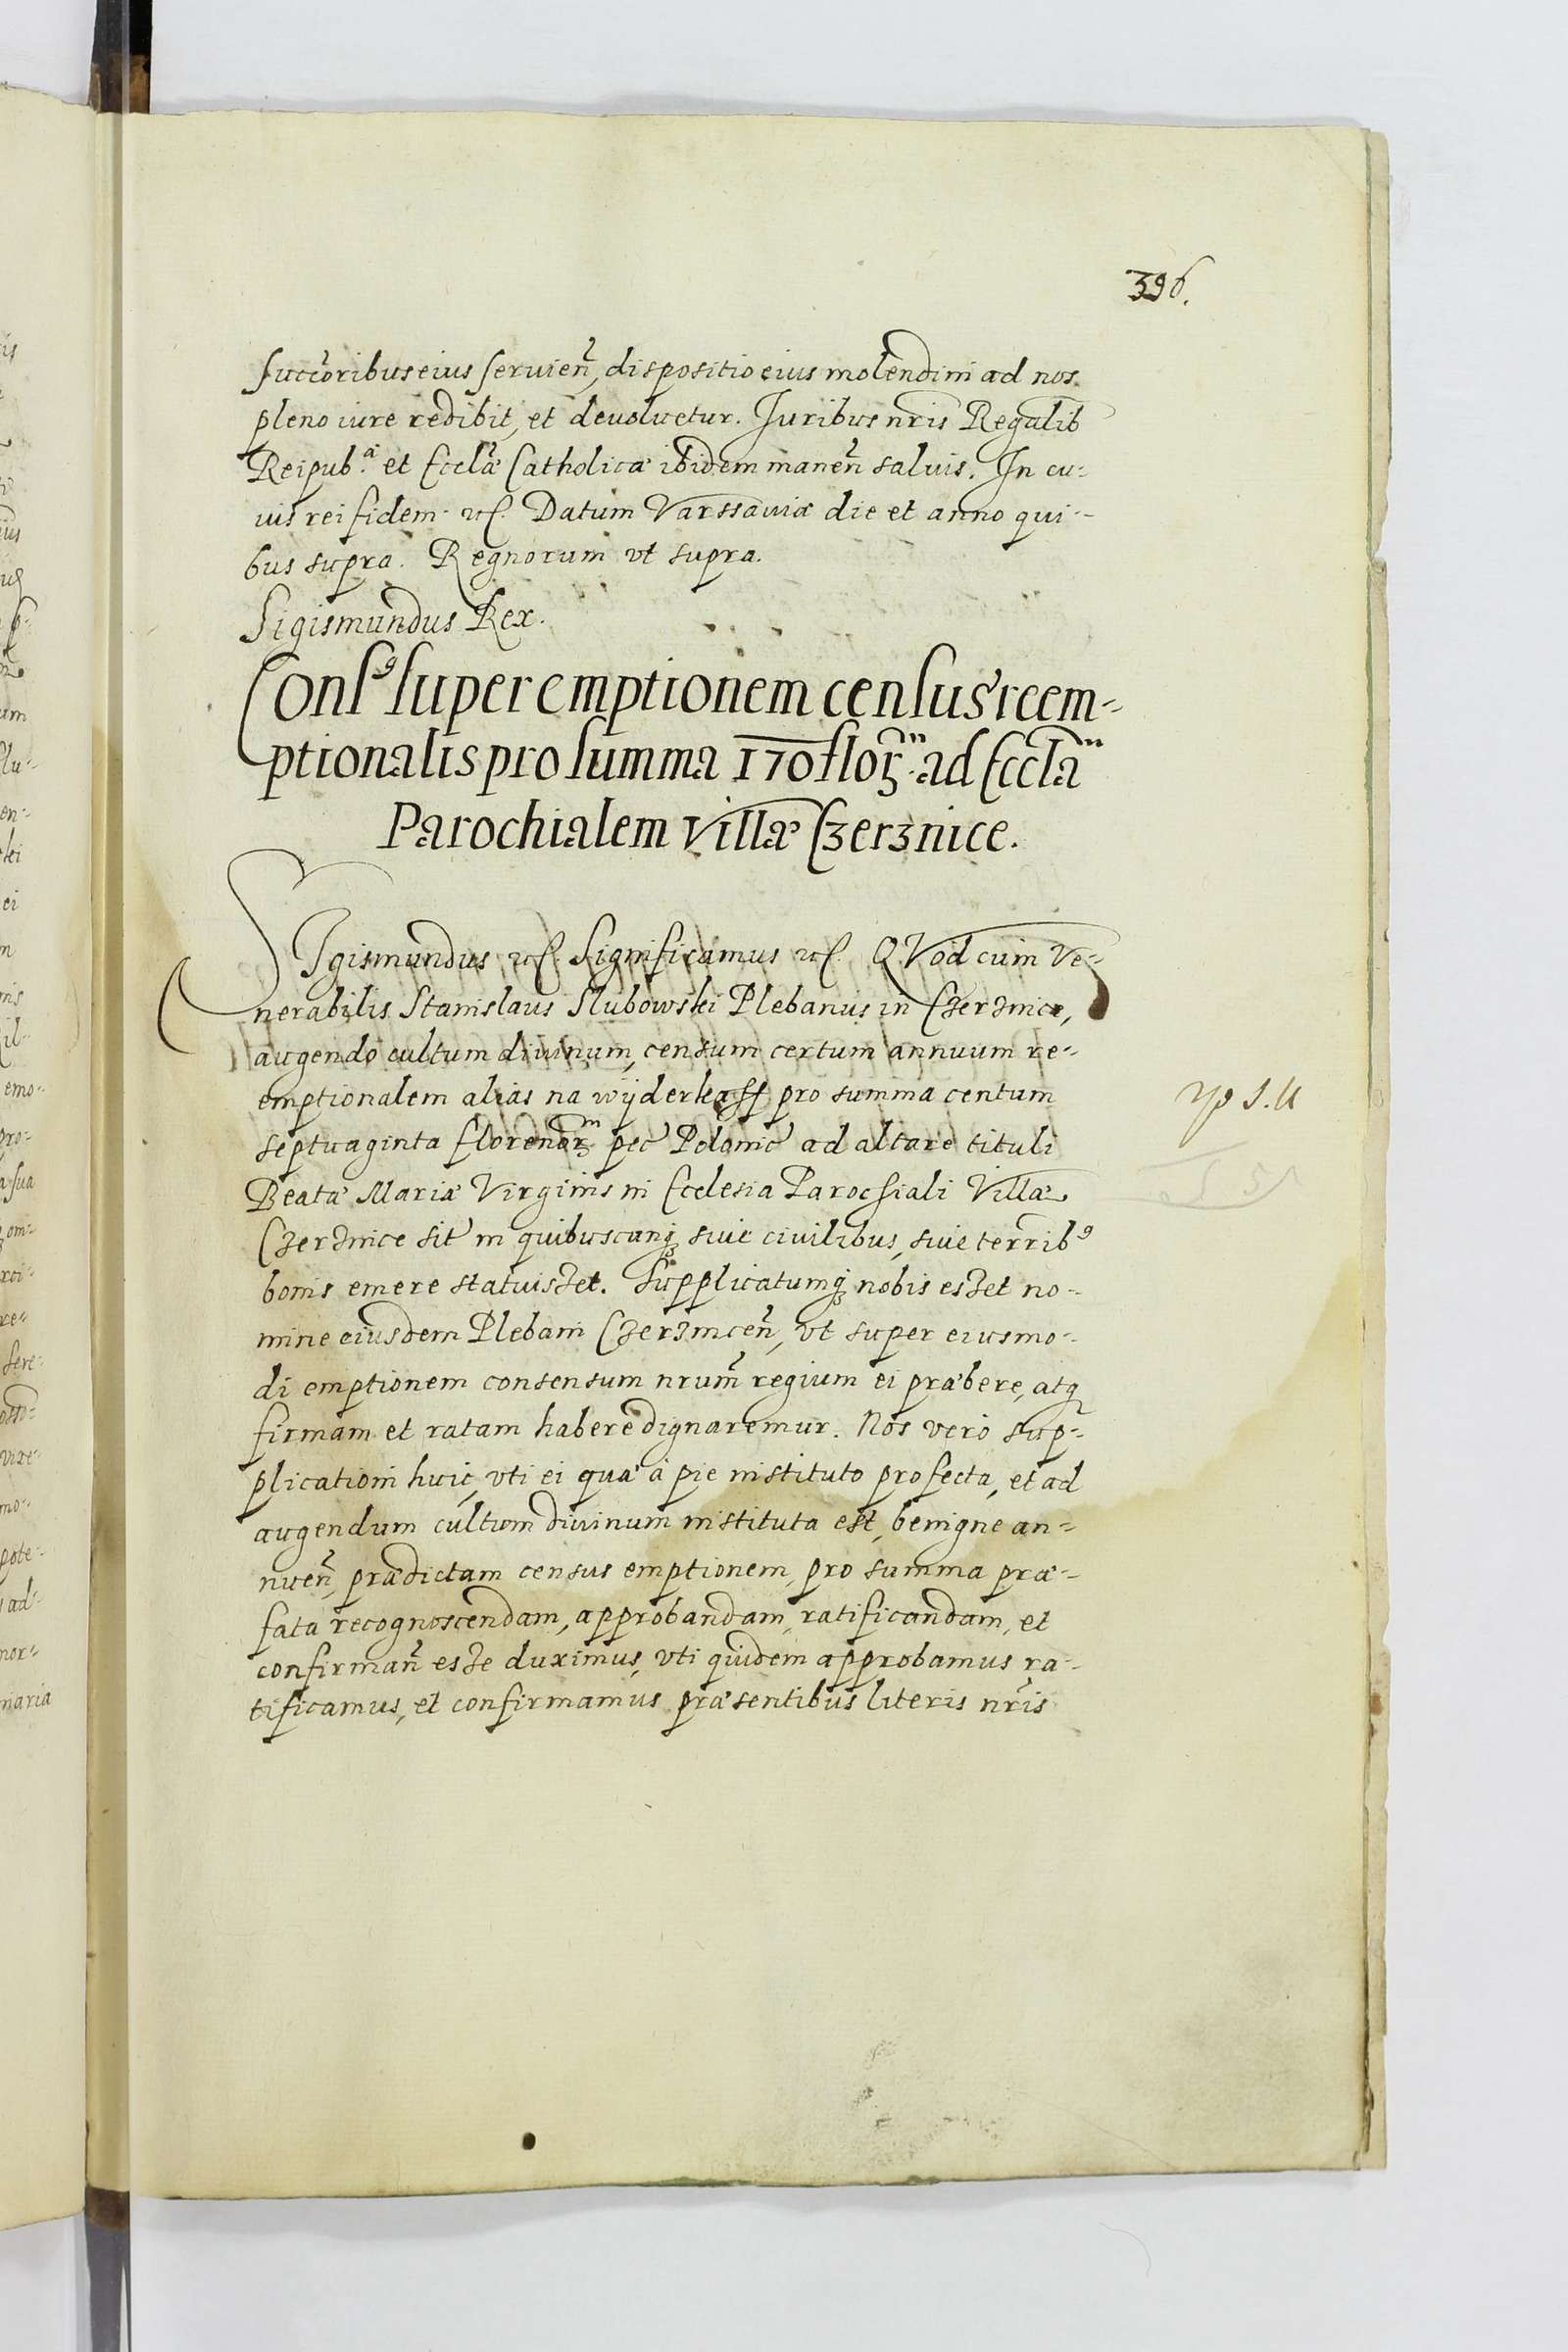 396.
succoribus eius servien, dispositio eius molendini ad nos
pleno iure redibit, et devolvetur. Iuribus nris Regalib
Reipub.a et Ecclae Catholicae ibidem manen salvis. In cu-
ius rei fidem etc. Datum Varssaviae die et anno qui-
bus supra. Regnorum ut supra.
Sigismundus Rex.
Cons9 super emptionem census reem-
ptionalis pro summa 170 florm ad Ecclam
Parochialem villae Czerznice.
SIgismundus etc. Significamus etc. QVod cum Ve-
nerabilis Stanislaus Slubowski Plebanus in Czerznice,
augendo cultum divinum, censum certum annuum re-
emptionalem alias na wÿderkaff pro summa centum
septuaginta florenorm pec Polonic ad altare tituli
Beatae Mariae Virginis in Ecclesia Parochiali Villae
Czerznice sit in quibuscunq sive civilibus, sive terrib9
bonis emere statuisset. Supplicatumq nobis esset no-
mine eiusdem Plebani Czerznicen, ut super eiusmo-
di emptionem consensum nrum regium ei praebere, atq
firmam et ratam habere dignaremur. Nos vero sup-
plicationi huic, uti ei quae a pie instituto profecta, et ad
augendum cultum divinum instituta est, benigne an-
nuen, praedictam census emptionem, pro summa prae-
fata recognoscendam, approbandam, ratificandam, et
confirman esse duximus, uti quidem approbamus ra-
tificamus, et confirmamus praesentibus literis nris